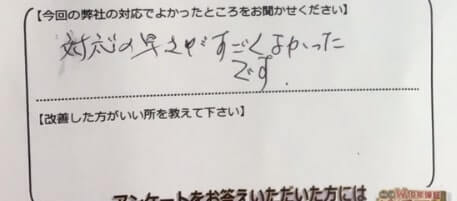 【今回の弊社の対応でよかったところをお聞かせください】
対応の早さがすごくよかった
です。
【改善した方がいい所を教えて下さい】
アンケートをお答えいただいた方には